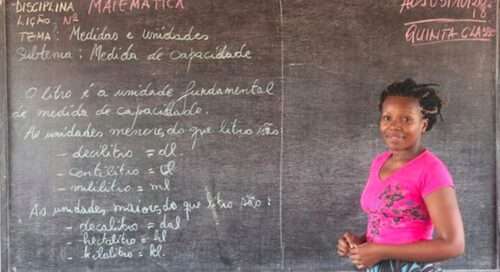 DISCIPLINA MATEMÁTICA
LIÇÃO Nº
TEMA: Medidas e unidades
Subtema: Medida de Capacidade
O litro é a unidade fundamental
de medida de capacidade.
As unidades menores do que litro são
- decilitro = dl.
- centilitro = cl
- mililitro = ml
As unidades maiores do que litro são:
- decalitro = dal
- hectolitro = hl
- kilolitro = kl.
18
QUINTA CLASSE